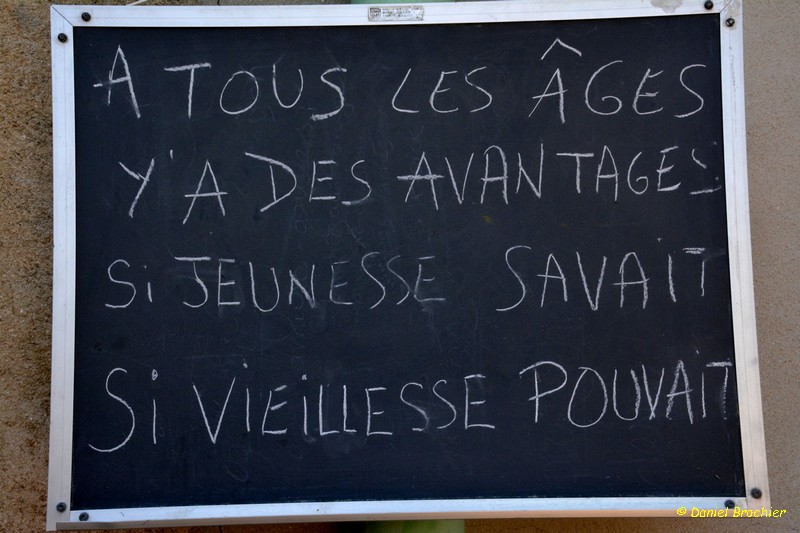 A TOUS LES ÂGES
Y'A DES AVANTAGES
Si JEUNESSE SAVAiT
Si ViEiLLESSE POUVAiT
© Daniel Brochier